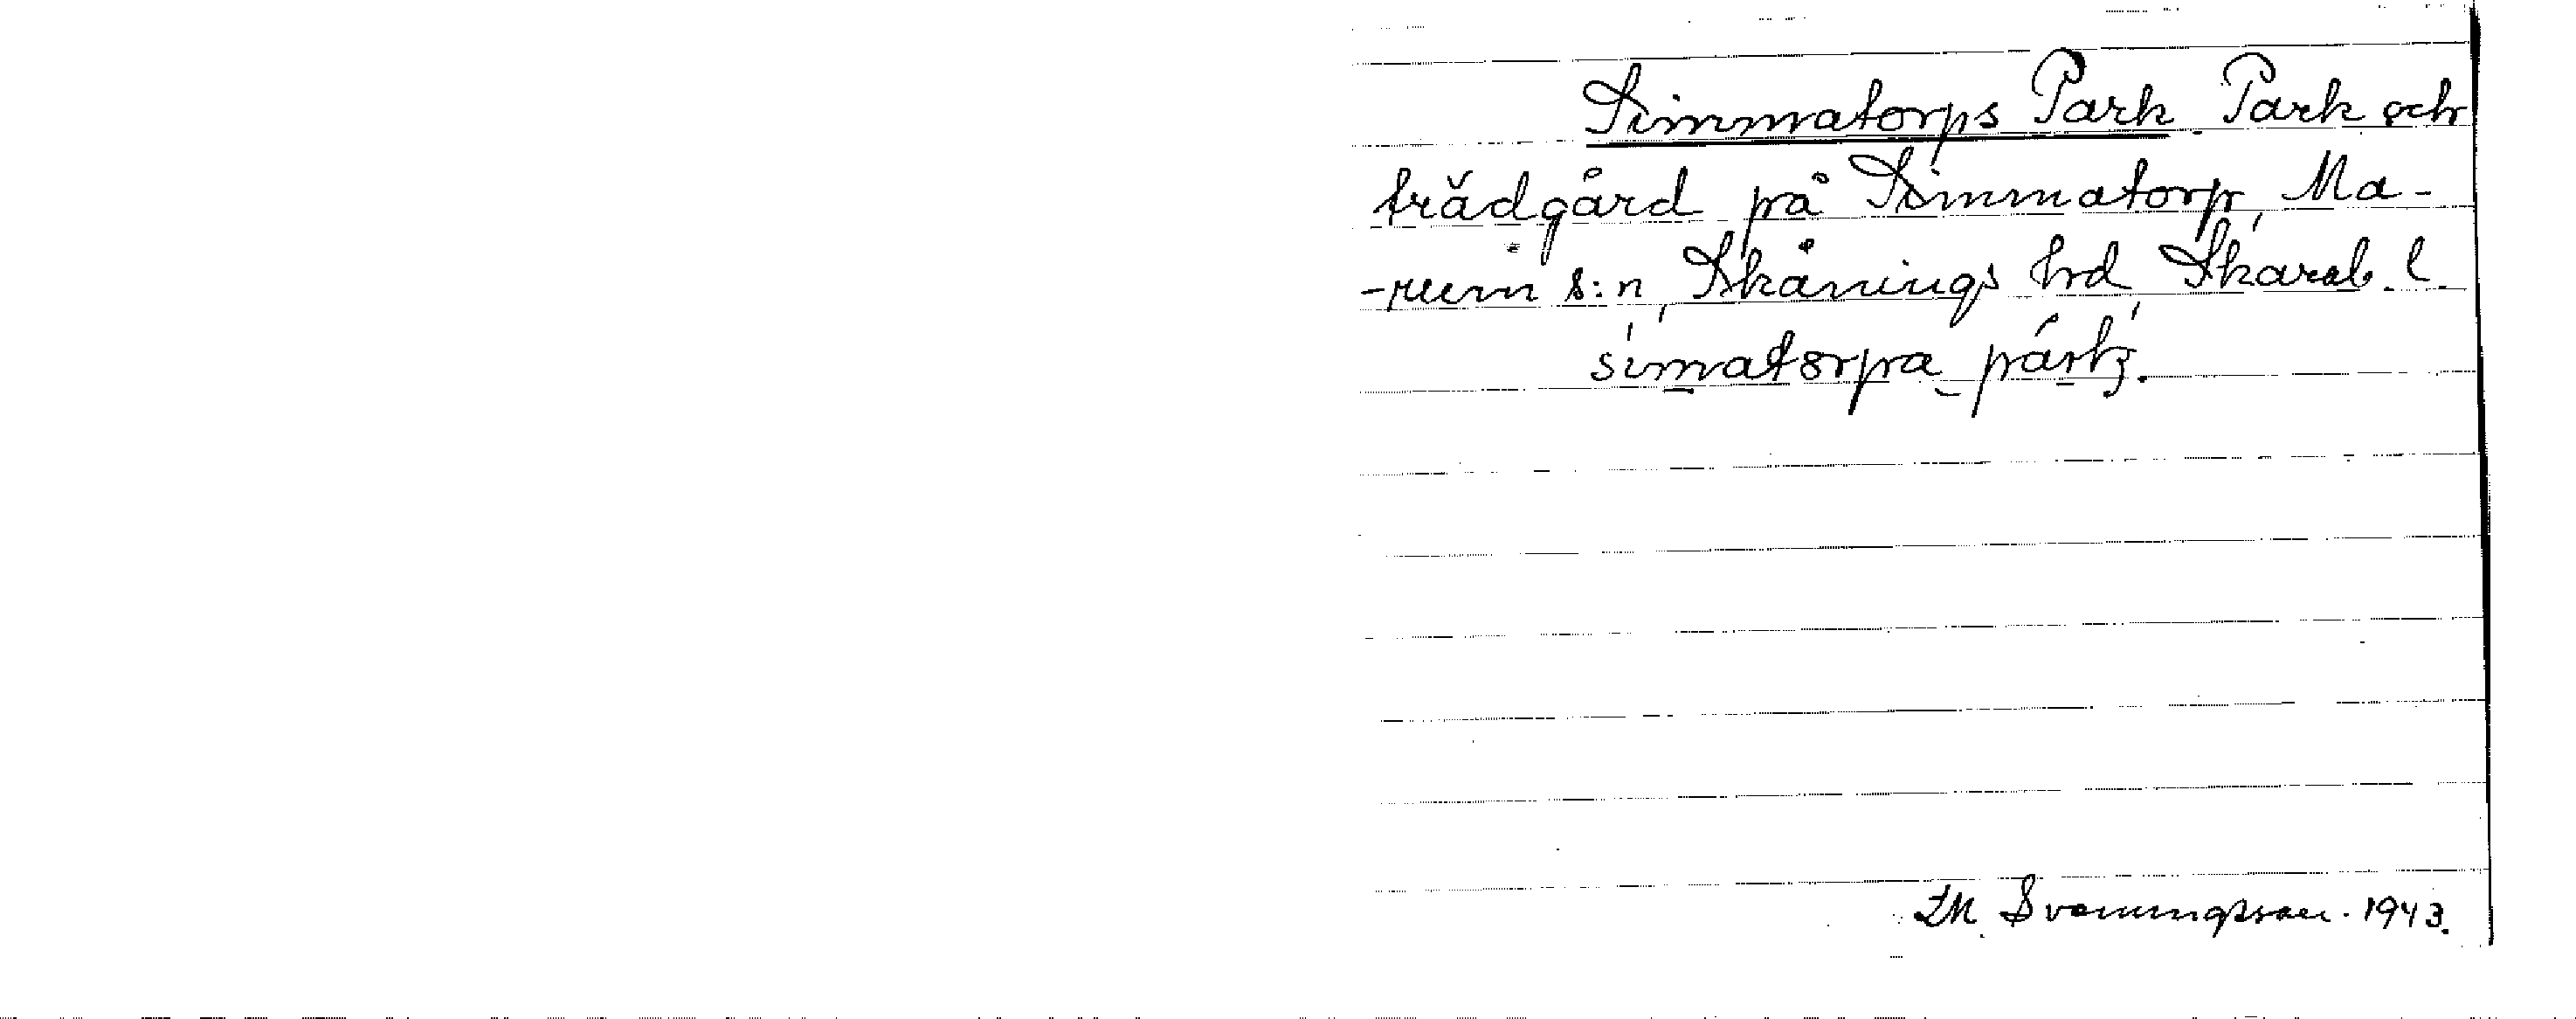 Simmatorps Park. Park och
trädgård på Simmatorp, Ma-
-rum s:n, Skånings hrd, Skarab. l.
simatorpa
Svenningsson. 1943.